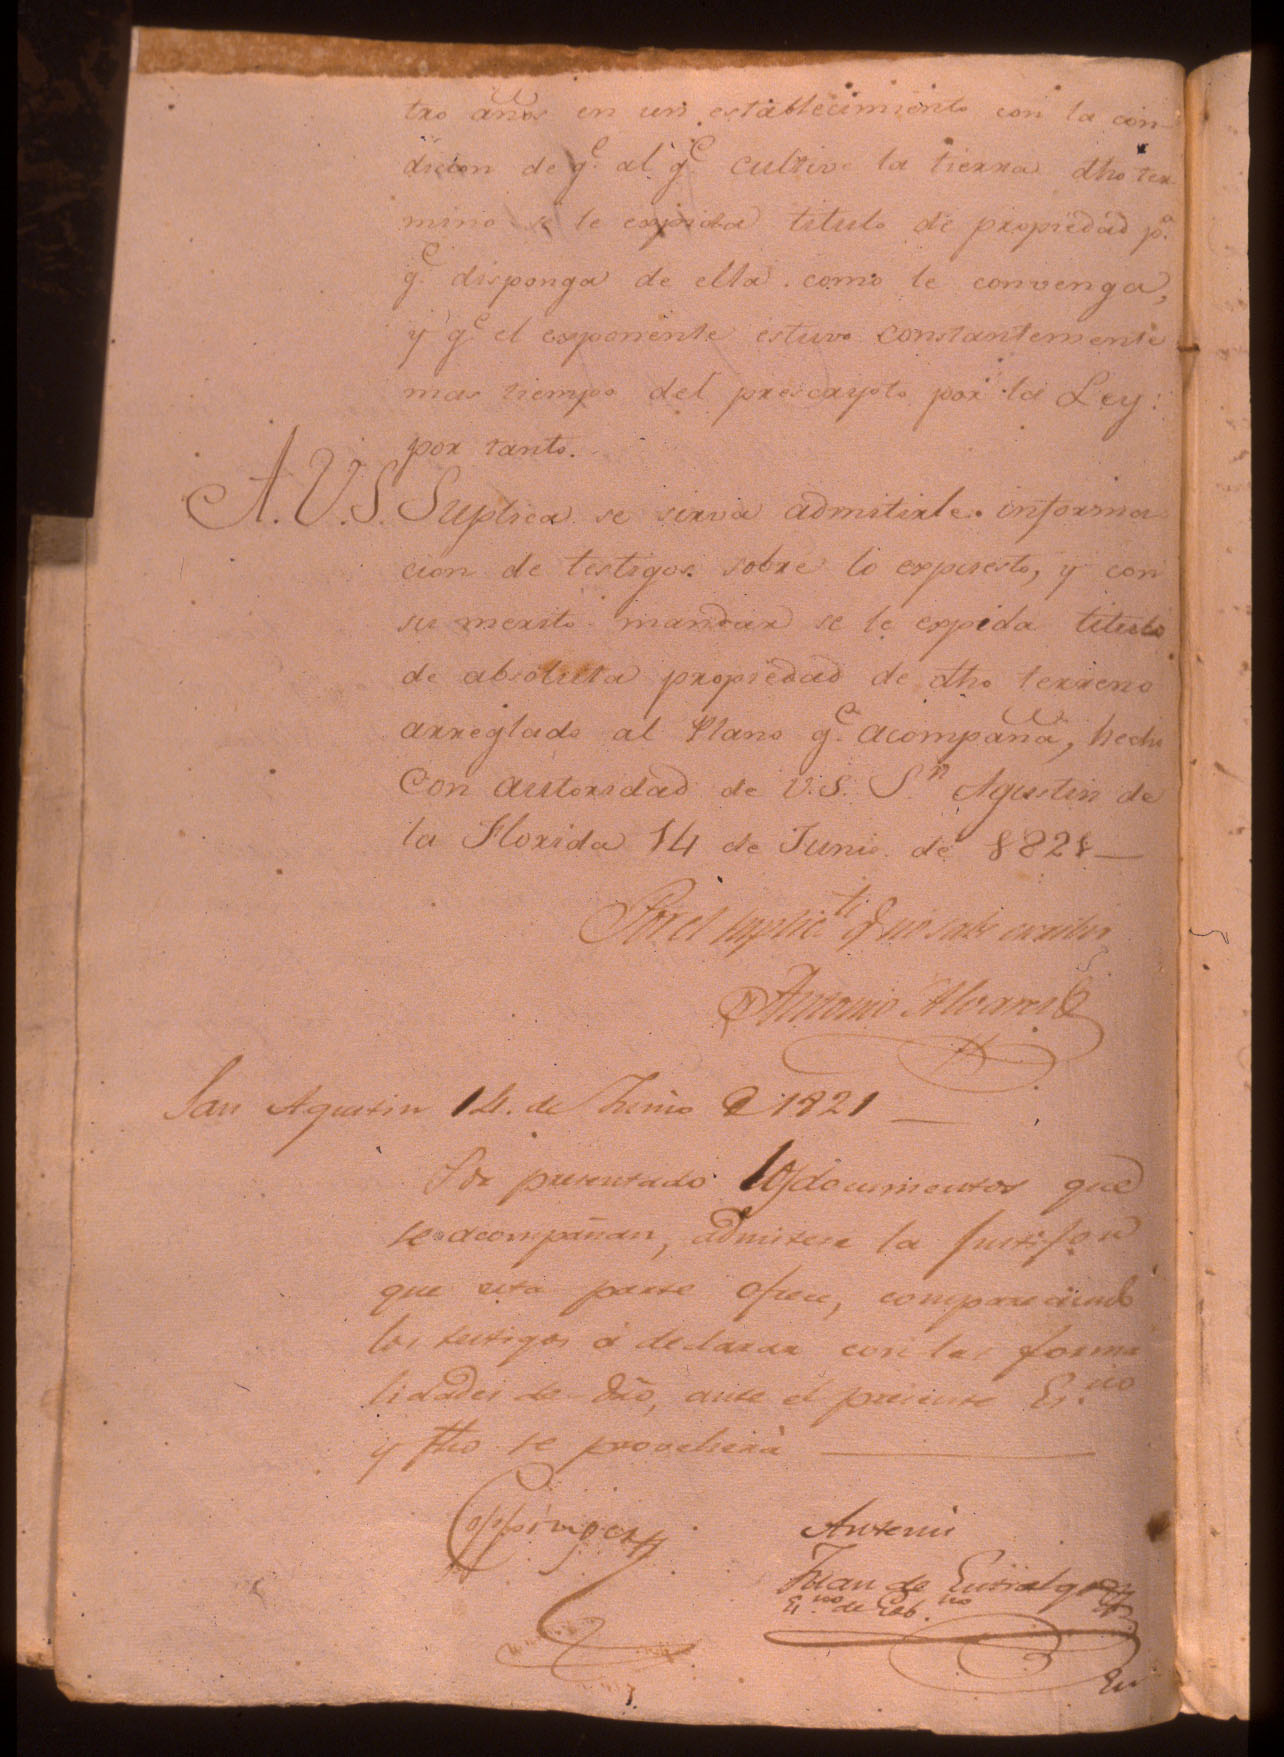 tro años en un establecimiento con la con-
dicion de q.e al q.e cultive la tierra dho ter
mino se le expida titulo de propiedad p.a
q.e disponga de ella como le convenga,
y q.e el exponente estuvo constantemente
mas tiempo del prescrypto por la Ley:
por tanto.
A. V. S. Suplica se sirva admitirle informa
cion de testigos sobre lo expuesto, y con
su merito mandar se le expida titulo
de absoluta propiedad de dho terreno
arreglado al Plano q.e acompaña, hecho
con autoridad de V.S. S.n Agustin de
la Florida 14 de Junio de 1821 —
Por el suplic.te q.e no sabe escribir
Antonio Alvarez
San Agustin 14. de Junio de 1821 —
Por presentado los documentos que
se acompañan, admitese la justif.on
que esta parte ofrece, compareciendo
los testigos á declarar con las forma
lidades de dro, ante el presente Es.no
y fho se proveherá —
Coppinger
Antemi
Juan de Entralgo
Es.no de Gob.no
En